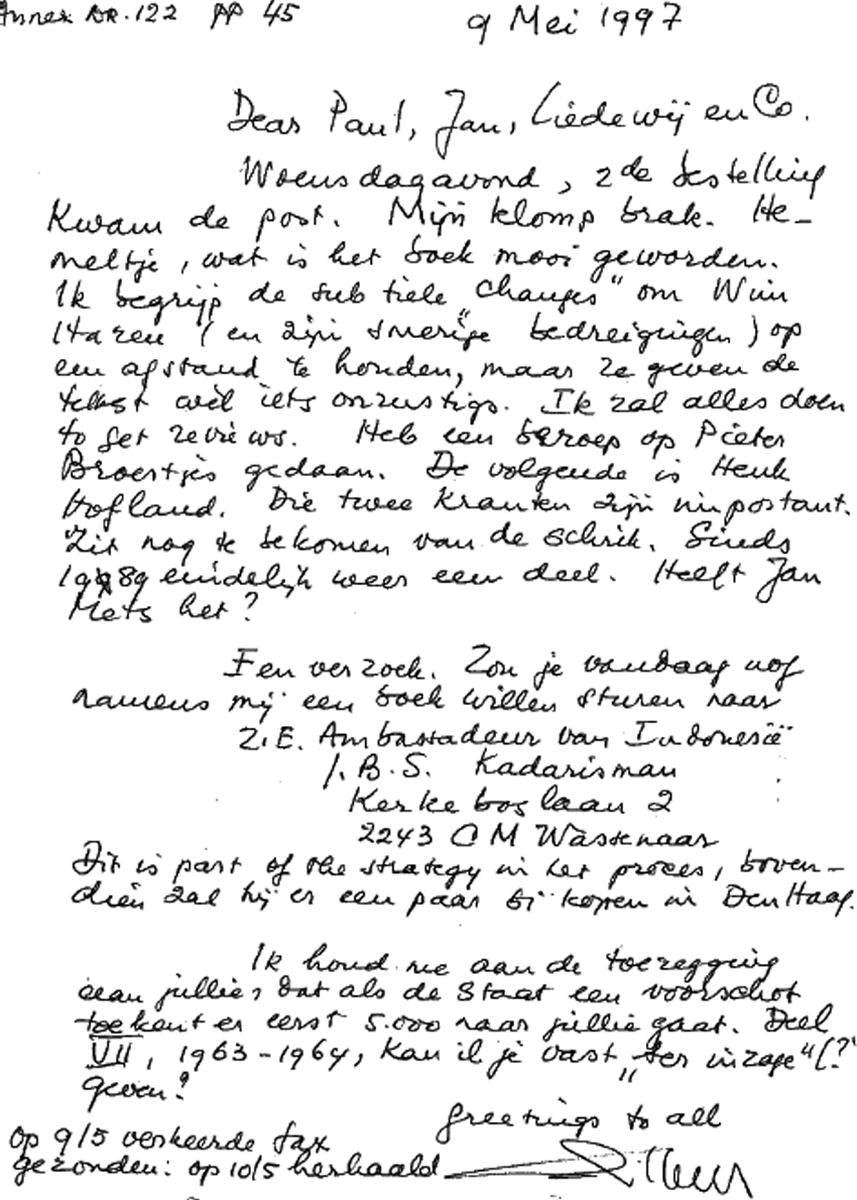 Annex DR. 122 PP 45
9 Mei 1997
Dear Paul, Jan, Liedewij en Co.
Woensdagavond, 2de bestelling
Kwam de post. Mijn klomp brak. He-
meltje, wat is het boek mooi geworden.
Ik begrijp de subtiele „changes" om Wim
Hazeu (en zijn smerige bedreigingen) op
een afstand te houden, maar ze geven de
tekst wel iets onrustigs. Ik zal alles doen
to get reviews. Heb een beroep op Pieter
Broertjes gedaan. De volgende is Henk
Hofland. Die twee Kranten zijn important.
Zit nog te bekomen van de schrik. Sinds
1989 eindelijk weer een deel. Heeft Jan
Mets het?
Een verzoek. Zou je vandaag nog
namens mij een boek willen sturen naar
Z.E. Ambassadeur van Indonesië
J.B.S. Kadarisman
Kerkeboslaan 2
2243 CM Wassenaar
Dit is part of the strategy in het proces, boven-
dien zal hij er een paar bij kopen in Den Haag.
Ik houd me aan de toezegging
aan jullie, dat als de Staat een voorschot
toekent er eerst 5.000 naar jullie gaat. Deel
VII, 1963-1964, Kan ik je vast „ter inzage" (?)
geven?
Greetings to all
Op 9/5 verkeerde fax
gezonden: op 10/5 herhaald
Willem